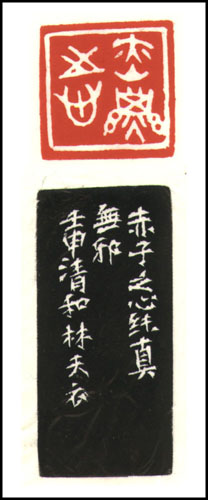 赤子之心純真
無邪
壬申清和林天衣